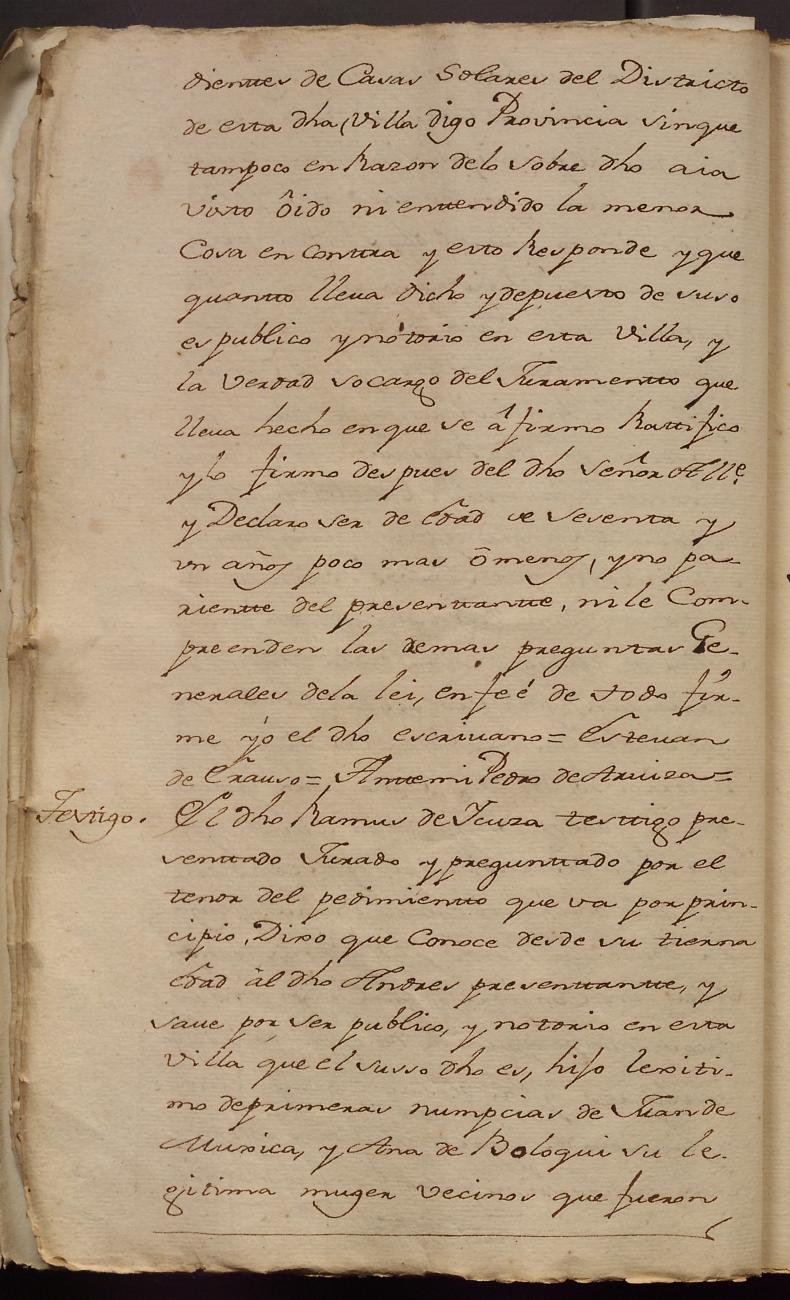 dientes de Casas Solares del Districto
de esta dha (Villa digo Provincia sinque
tampoco en Razon delo sobre dho aia
visto ôido ni enttendido la menor
Cosa en conttra y esto Responde y que
quantto lleva dicho y depuesto de suso
es publico y nótorio en esta Villa, y
la Verdad socargo del Juramentto que
lleva hecho en que se âfirmo Rattifico
y lo firmo despues del dho Señor Alle.
y Declaro ser de edad de sesenta y
un años poco mas ômenos, y no pa-
riente del presenttantte, ni le Com-
preenden las demas preguntas Ge-
nerales dela lei, en feé de todo fir-
me yo el dho escrivano= Estevan
de Erauso= Antemi Pedro de Aruiza=
Testigo. El dho Ramus de Ycuza testtigo pre-
senttado Jurado y pregunttado por el
tenor del pedimientto que va por prin-
cipio, Dixo que Conoce desde su tierna
edad âl dho Andres presenttantte, y
save por ser publico, y notorio en esta
Villa que el susso dho es, hijo lexiti-
mo deprimeras numpcias de Juan de
Muxica, y Ana de Bologui su le-
gitima muger vecinos que fueron